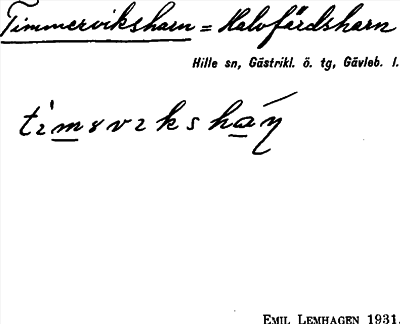 Timmerviksharn = Halvfärdsharn
Hille sn, Gästrikl. ö. tg, Gävleb. l.
EMIL LEMHAGEN 1931.